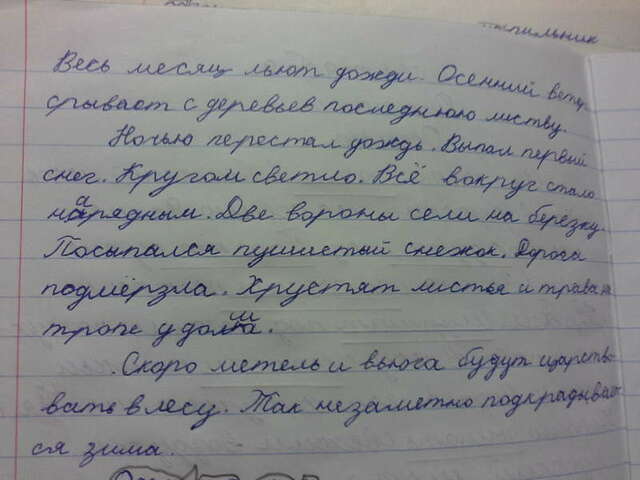 напильник
Весь месяц льют дожди. Осенний ветер
срывает с деревьев последнюю листву.
Ночью перестал дождь. Выпал первый
снег. Кругом светло. Всё вокруг стало
нарядным. Две вороны сели на березку.
Посыпался пушистый снежок. Дорога
подмёрзла. Хрустят листья и трава на
тропе у дома.
Скоро метель и вьюга будут царство
вать в лесу. Так незаметно подкрадывает
ся зима.